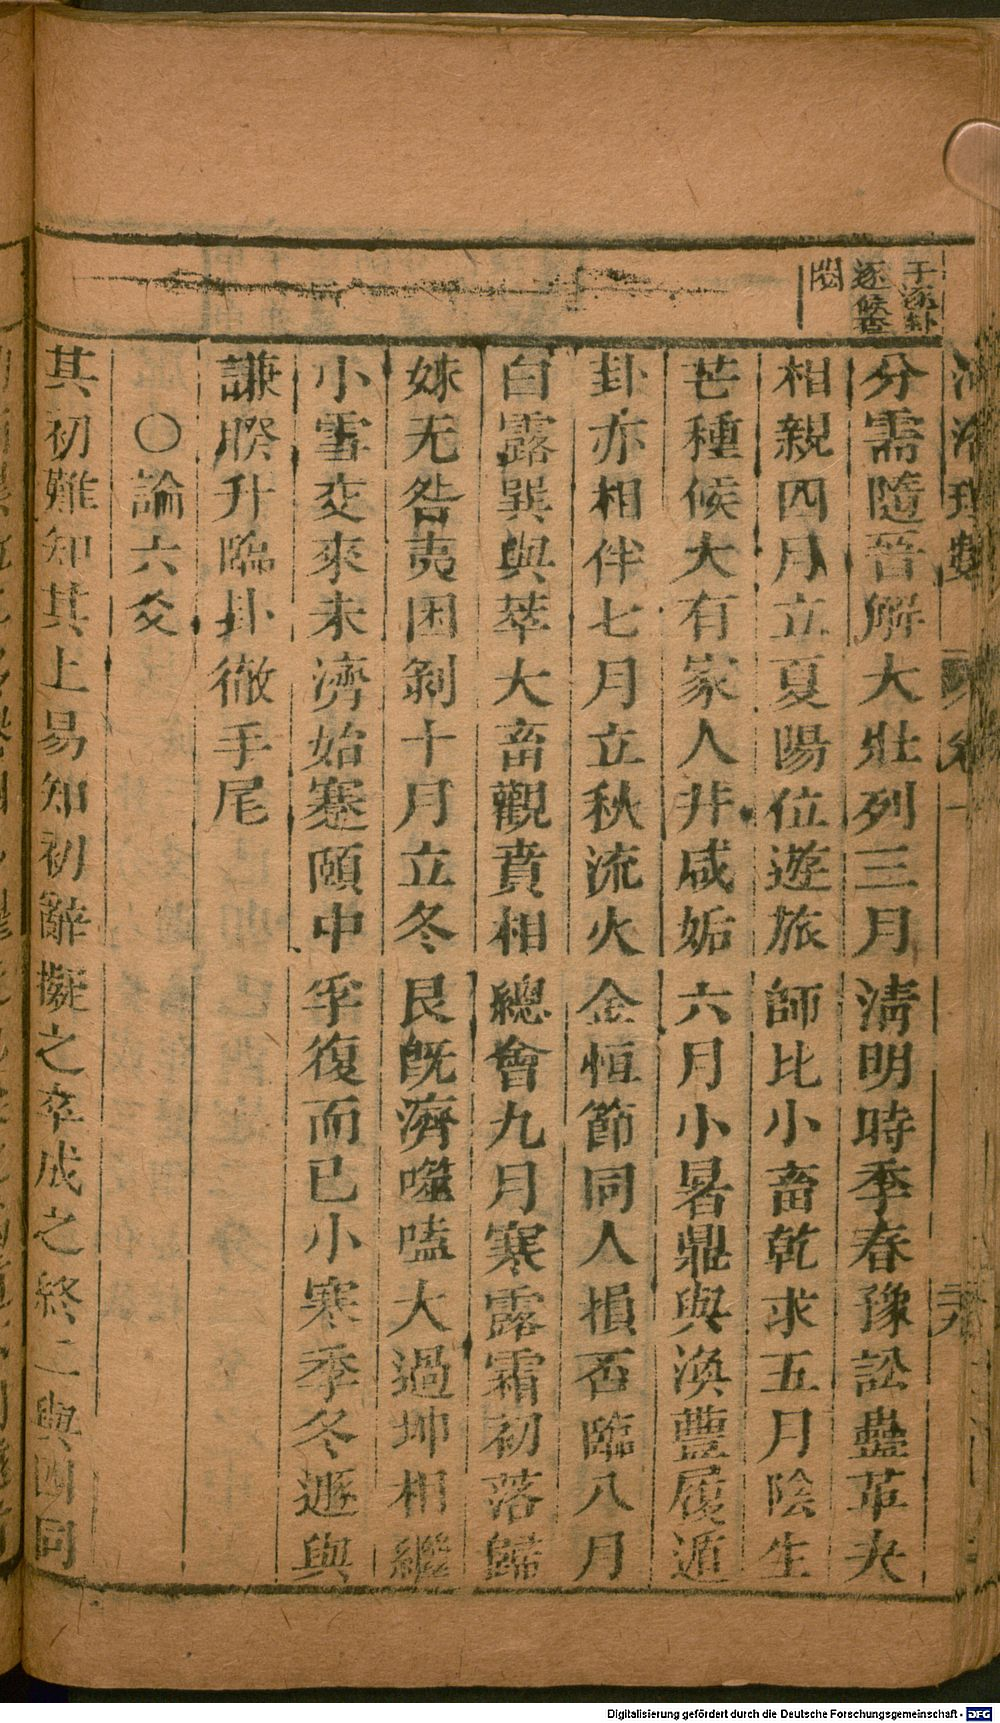 于添卦
逐候查
閱
河洛理數
卷一
分需隨晉解大壯列三月清明時季春豫訟蠱革夬
相親四月立夏陽位遊旅師比小畜乾求五月陰生
芒種候大有家人井咸姤六月小暑鼎與渙豐履遁
卦亦相伴七月立秋流火金恒節同人損否臨八月
白露巽與萃大畜觀賁相總會九月寒露霜初落歸
妹无咎夷困剝十月立冬艮旣濟噬嗑大過坤相繼
小雪交來未濟始蹇頤中孚復而已小寒季冬遯與
謙睽升臨卦徹手尾
○論六爻
其初難知其上易知初辭擬之卒成之終二與四同
Digitalisierung gefördert durch die Deutsche Forschungsgemeinschaft - DFG